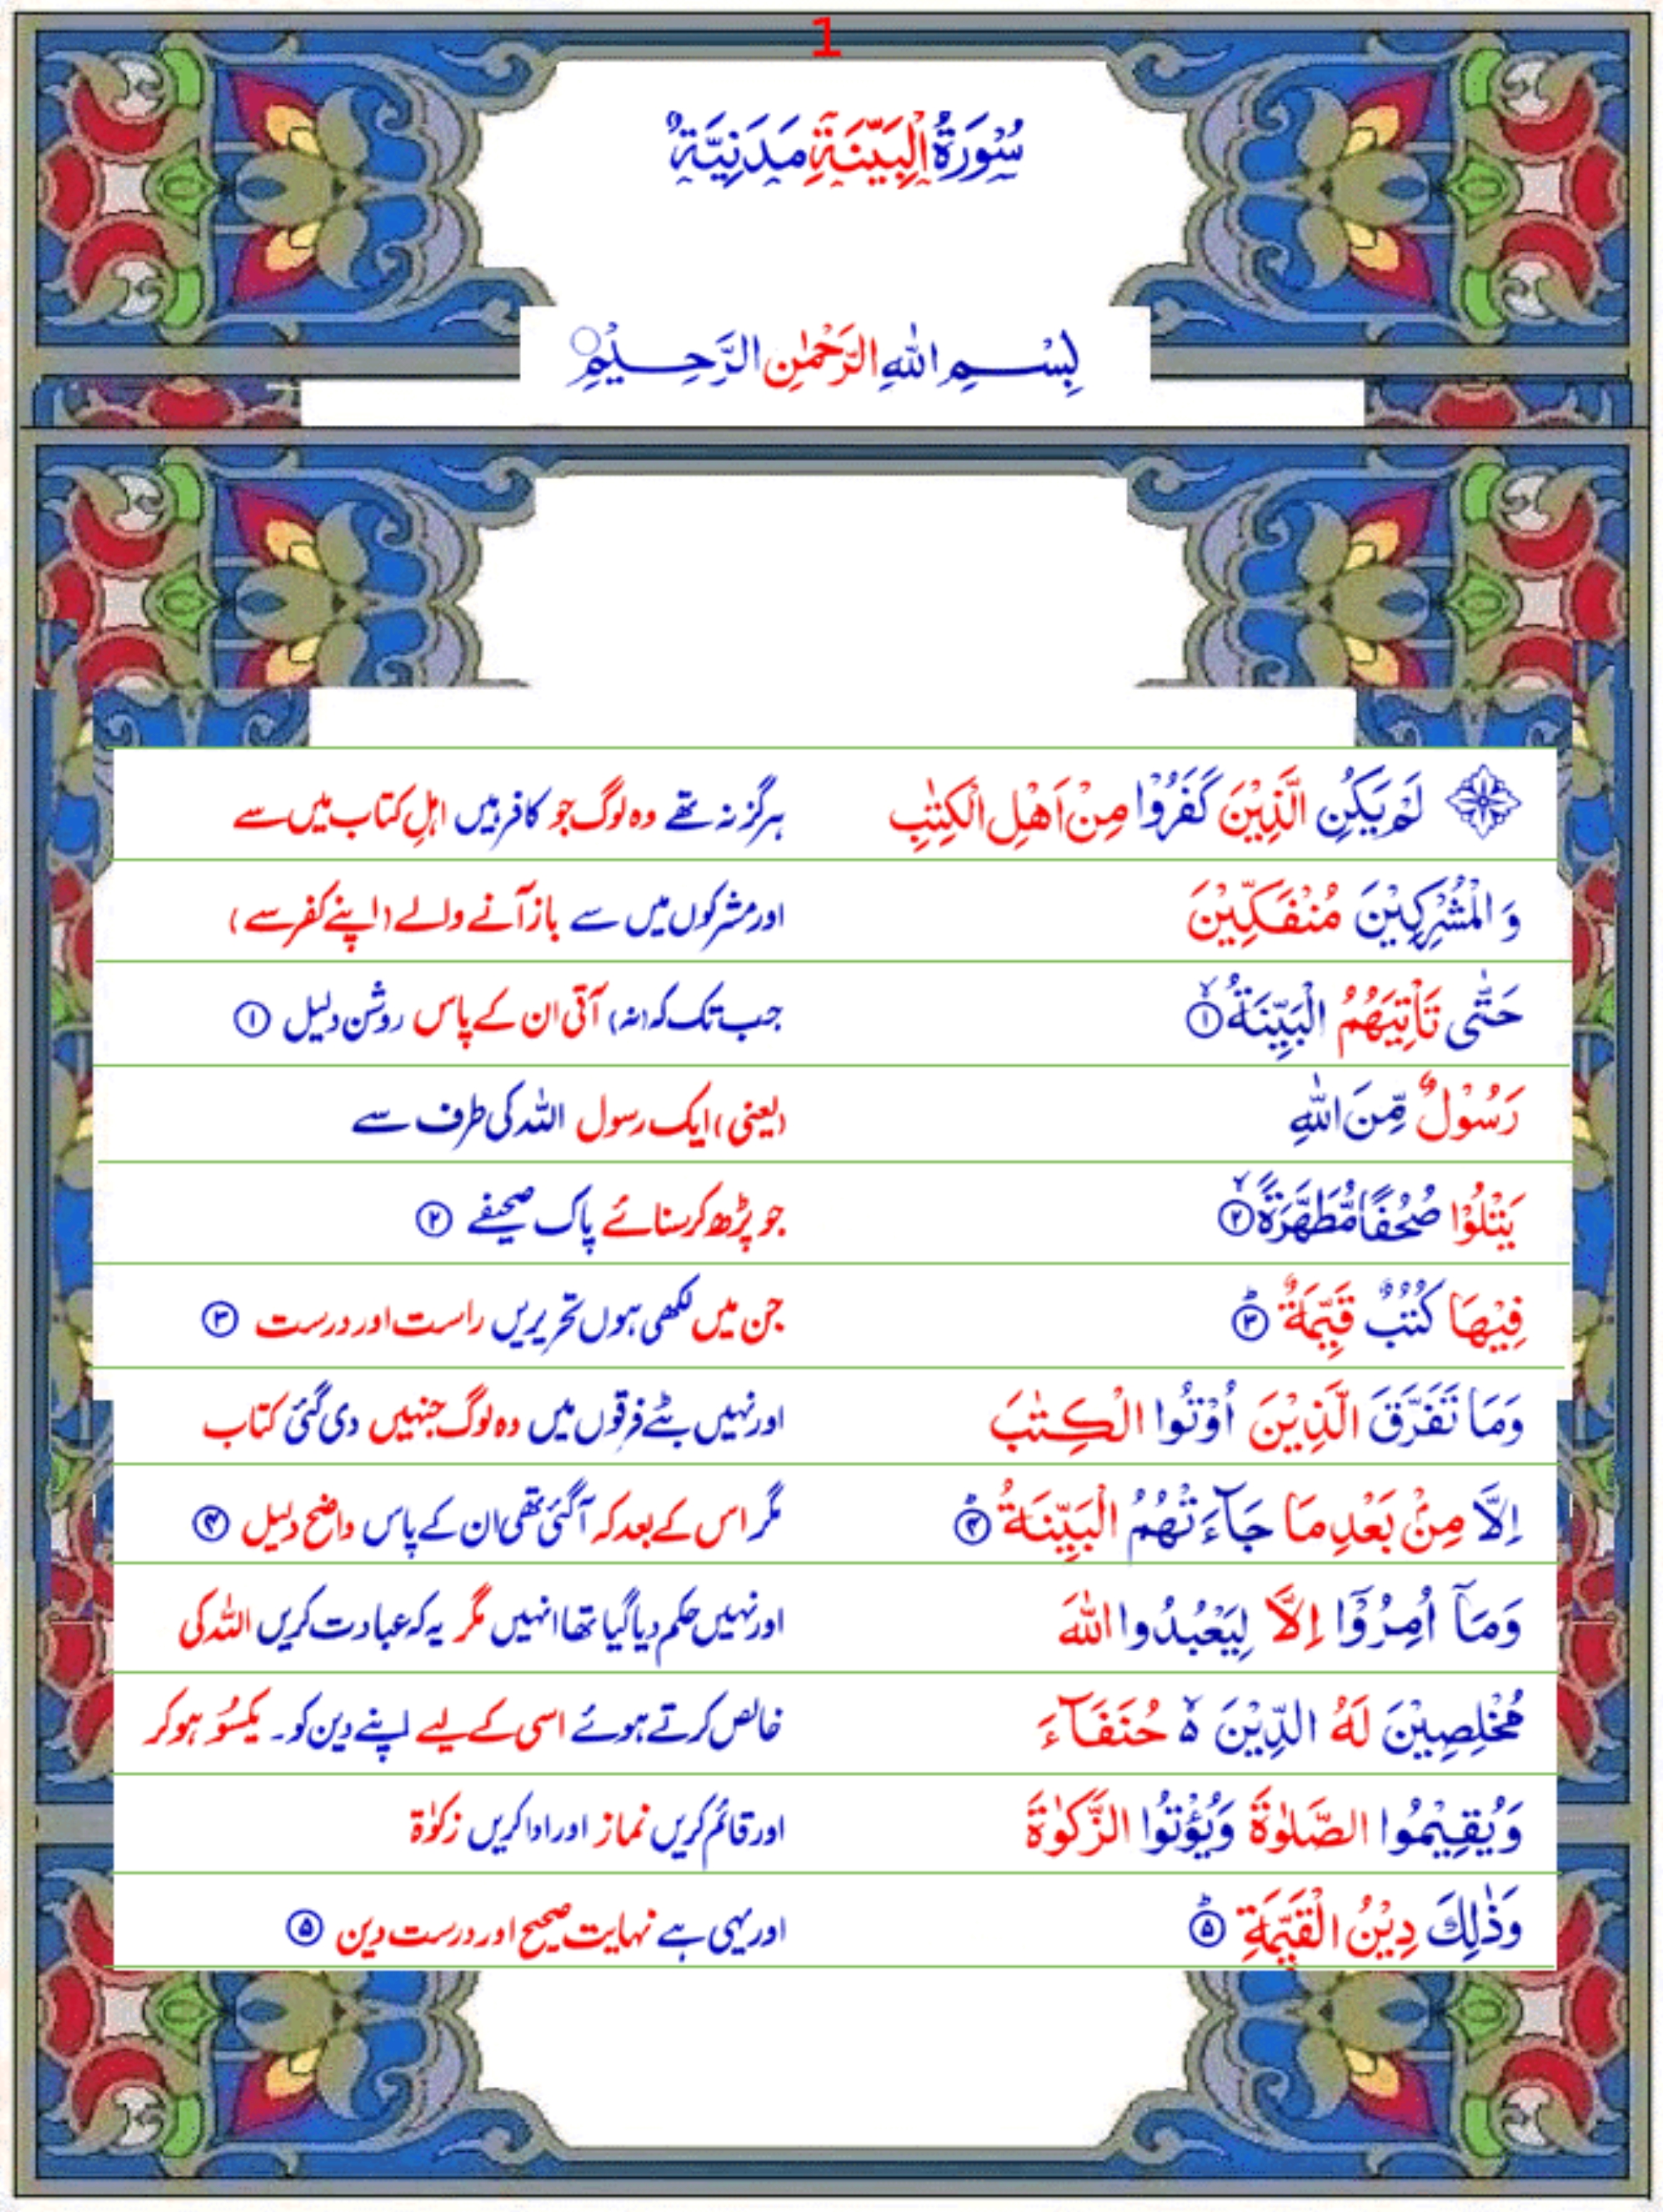 1
سُوْرَةُ الْبَيِّنَةِ مَدَنِيَّةٌ
بِسْمِ اللّٰهِ الرَّحْمٰنِ الرَّحِيْمِ
لَمْ يَكُنِ الَّذِيْنَ كَفَرُوْا مِنْ اَهْلِ الْكِتٰبِ ہرگز نہ تھے وہ لوگ جو کافر ہیں اہلِ کتاب میں سے
وَ الْمُشْرِكِيْنَ مُنْفَكِّيْنَ اور مشرکوں میں سے باز آنے والے (اپنے کفر سے)
حَتّٰى تَاْتِيَهُمُ الْبَيِّنَةُ ۙ﴿۱﴾ جب تک کہ (نہ) آتی ان کے پاس روشن دلیل ﴿۱﴾
رَسُوْلٌ مِّنَ اللّٰهِ (یعنی) ایک رسول اللہ کی طرف سے
يَتْلُوْا صُحُفًا مُّطَهَّرَةً ۙ﴿۲﴾ جو پڑھ کر سنائے پاک صحیفے ﴿۲﴾
فِيْهَا كُتُبٌ قَيِّمَةٌ ؕ﴿۳﴾ جن میں لکھی ہوں تحریریں راست اور درست ﴿۳﴾
وَمَا تَفَرَّقَ الَّذِيْنَ اُوْتُوا الْكِتٰبَ اور نہیں بٹے فرقوں میں وہ لوگ جنہیں دی گئی کتاب
اِلَّا مِنْۢ بَعْدِ مَا جَآءَتْهُمُ الْبَيِّنَةُ ؕ﴿۴﴾ مگر اس کے بعد کہ آگئی تھی ان کے پاس واضح دلیل ﴿۴﴾
وَمَآ اُمِرُوْٓا اِلَّا لِيَعْبُدُوا اللّٰهَ اور نہیں حکم دیا گیا تھا انہیں مگر یہ کہ عبادت کریں اللہ کی
مُخْلِصِيْنَ لَهُ الدِّيْنَ ۙ۬ حُنَفَآءَ خالص کرتے ہوئے اسی کے لیے اپنے دین کو۔ یکسُو ہو کر
وَيُقِيْمُوا الصَّلٰوةَ وَيُؤْتُوا الزَّكٰوةَ اور قائم کریں نماز اور ادا کریں زکوٰۃ
وَذٰلِكَ دِيْنُ الْقَيِّمَةِ ؕ﴿۵﴾ اور یہی ہے نہایت صحیح اور درست دین ﴿۵﴾